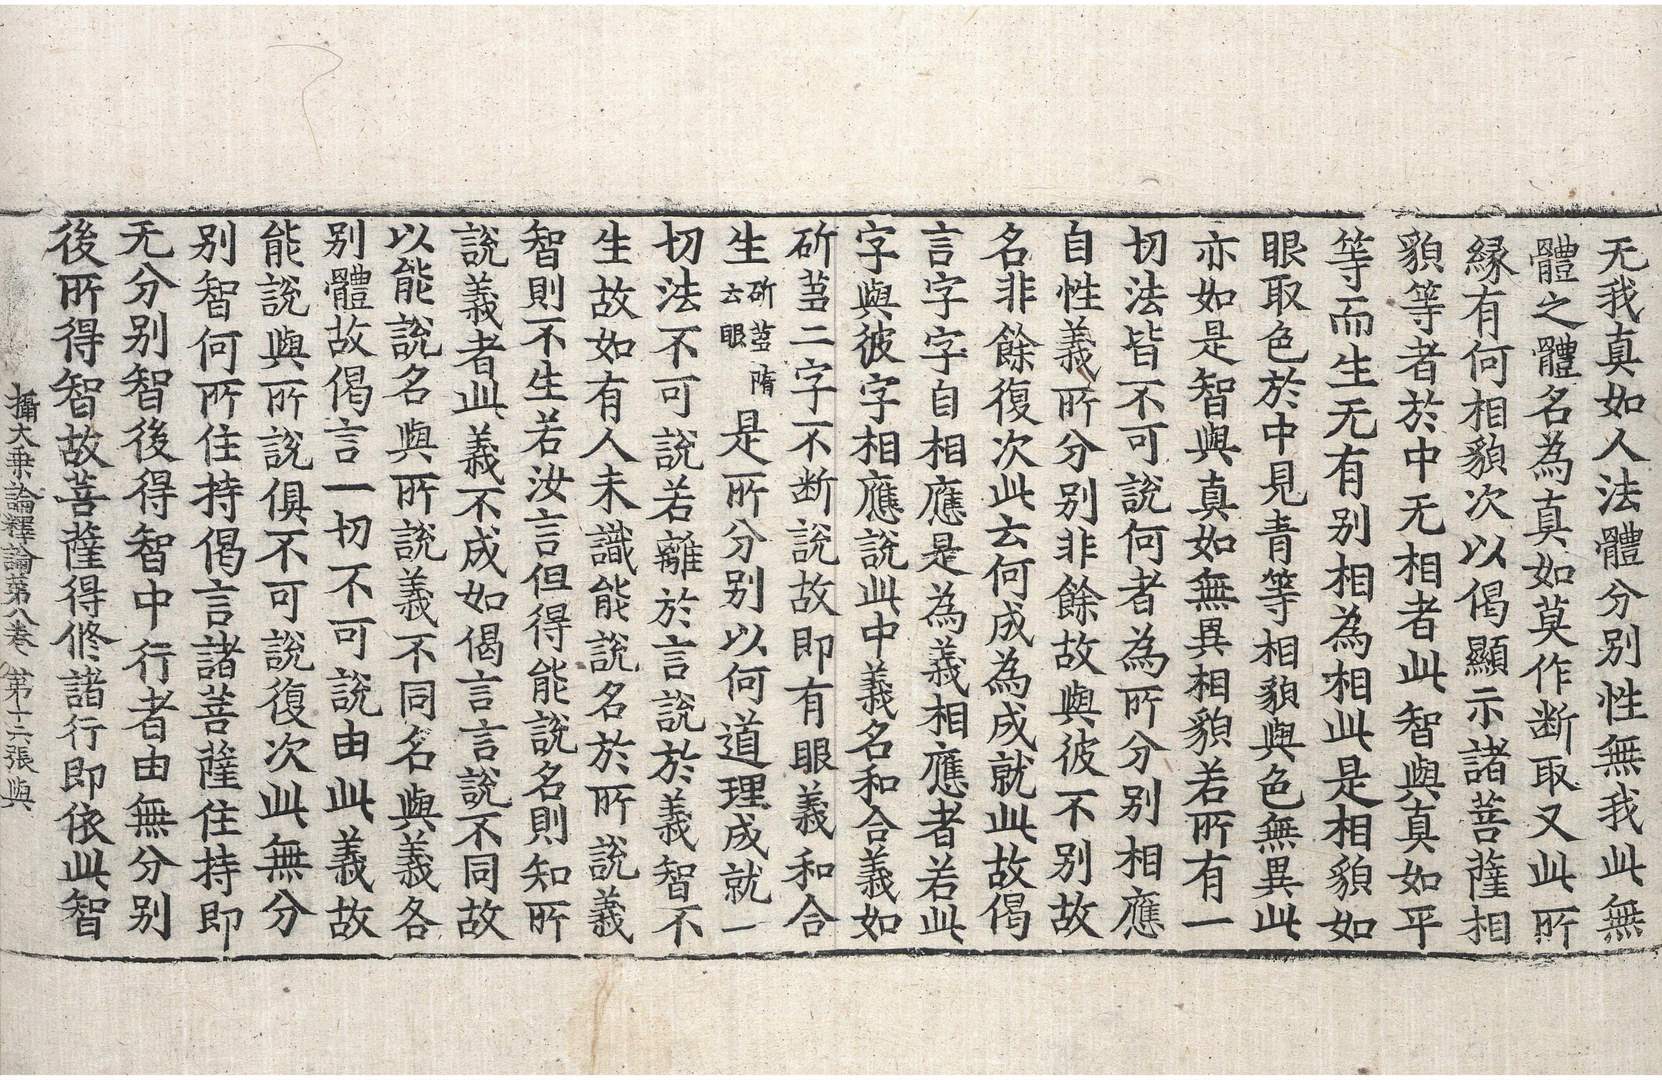 无我真如人法體分別性無我此無
體之體名為真如莫作断取又此所
緣有何相貌次以偈顯示諸菩薩相
貌等者於中无相者此智與真如平
等而生无有別相為相此是相貌如
眼取色於中見青等相貌與色無異此
亦如是智與真如無異相貌若所有一
切法皆不可說何者為所分別相應
自性義所分別非餘故與彼不別故
名非餘復次此云何成為成就此故偈
言字字自相應是為義相應者若此
字與彼字相應說此中義名和合義如
斫芻二字不断說故即有眼義和合
生斫芻隋云眼是所分別以何道理成就一
切法不可說若離於言說於義智不
生故如有人未識能說名於所說義
智則不生若汝言但得能說名則知所
說義者此義不成如偈言言說不同故
以能說名與所說義不同名與義各
別體故偈言一切不可說由此義故
能說與所說俱不可說復次此無分
別智何所住持偈言諸菩薩住持即
无分別智後得智中行者由無分別
後所得智故菩薩得修諸行即依此智
攝大乗論釋論第八卷 第十三張 與